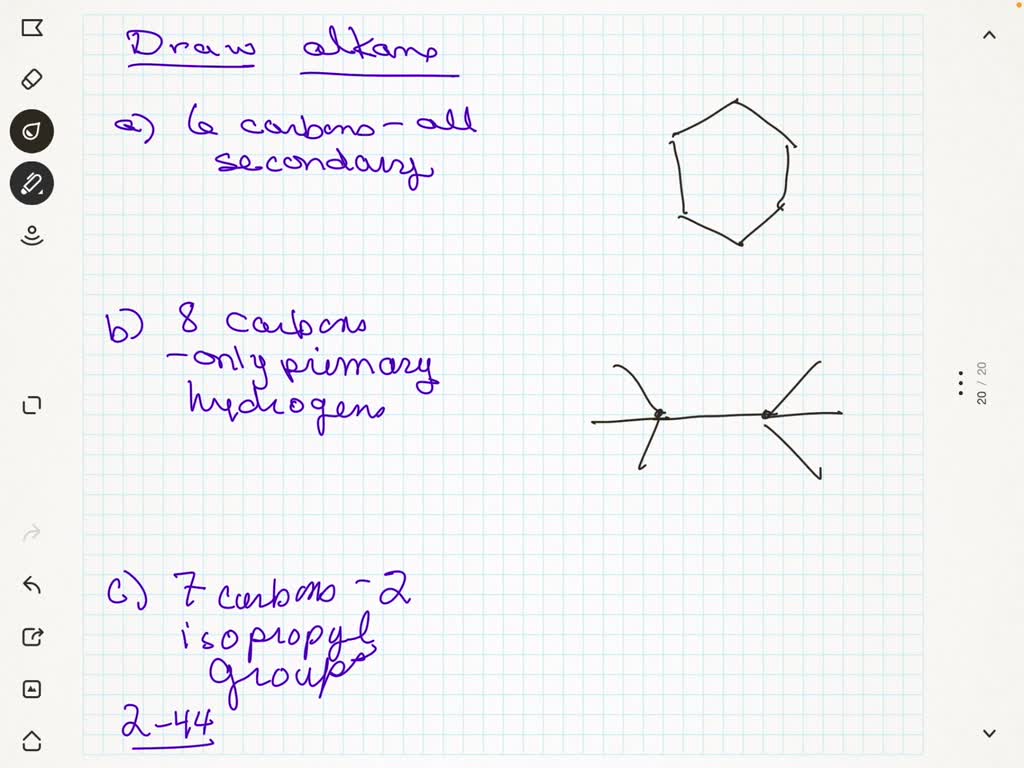 Draw alkans
a) 6 carbons - all
secondary
b) 8 carbons
- only primary
hydrogens
20 / 20
c) 7 carbons - 2
isopropyl
groups
2-44